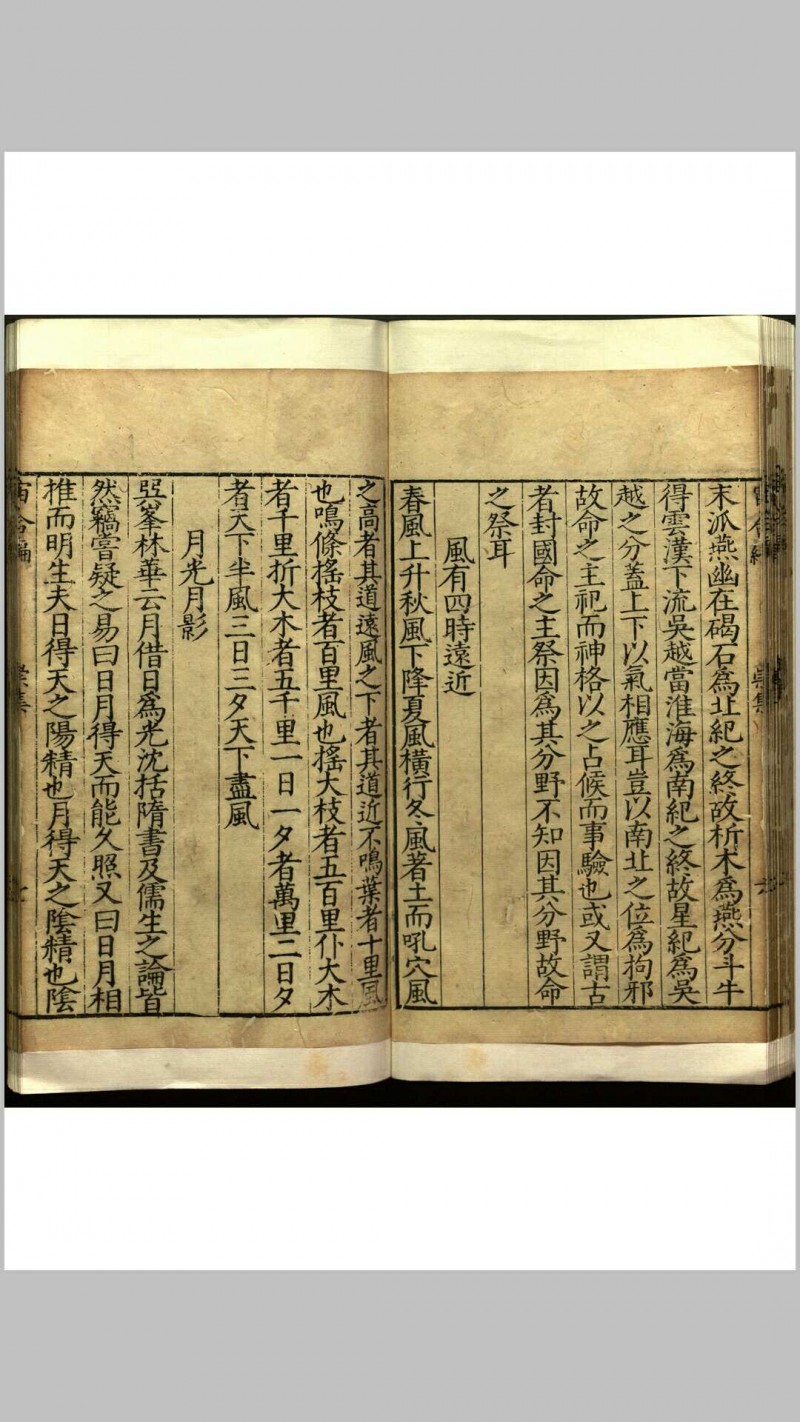 末派燕幽在碣石為北紀之終故析木為燕分斗牛
得雲漢下流吳越當淮海為南紀之終故星紀為吳
越之分蓋上下以氣相應耳豈以南北之位為拘邪
故命之主祀而神格以之占候而事驗也或又謂古
者封國命之主祭因為其分野不知因其分野故命
之祭耳
風有四時遠近
春風上升秋風下降夏風橫行冬風著土而吼穴風
之高者其道遠風之下者其道近不鳴葉者十里風
也鳴條搖枝者百里風也搖大枝者五百里仆大木
者千里折大木者五千里一日一夕者萬里二日夕
者天下半風三日三夕天下盡風
月光月影
與峯林華云月借日為光沈括隋書及儒生之論皆
然竊嘗疑之易曰日月得天而能久照又曰日月相
推而明生夫日得天之陽精也月得天之陰精也陰